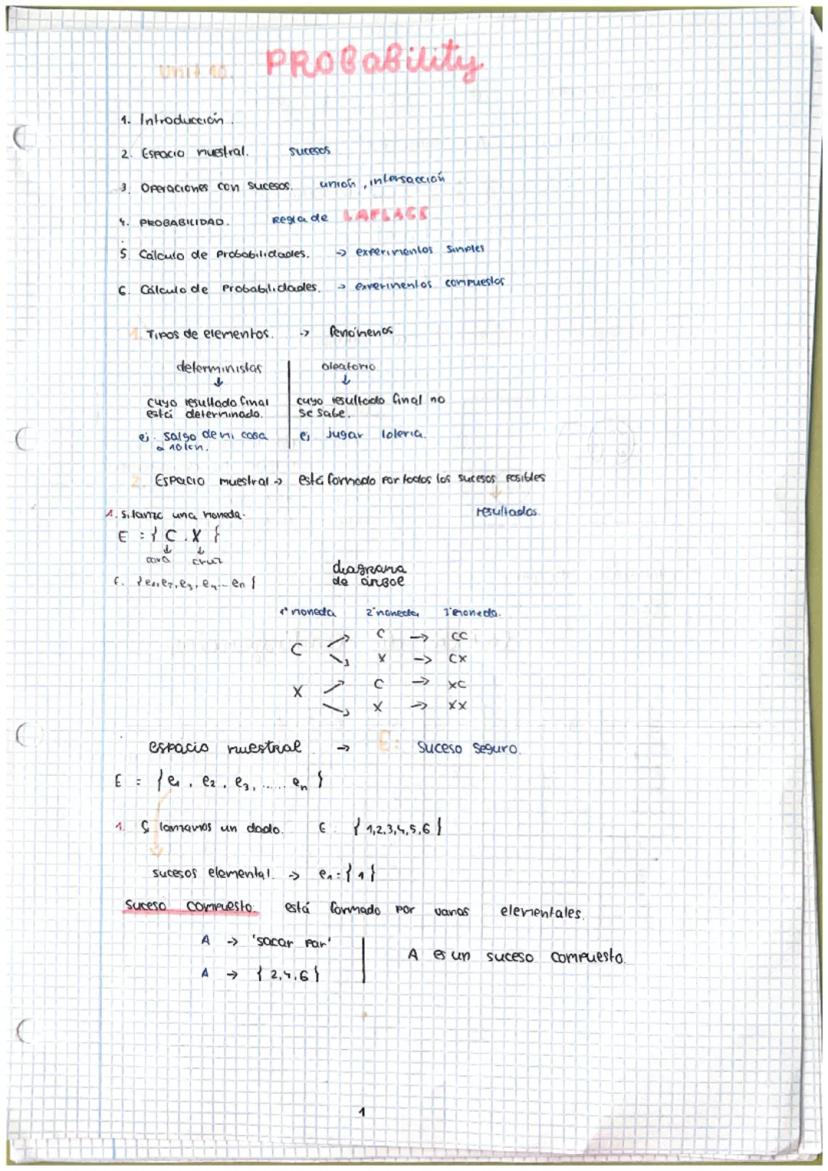 Unit 10. PROBaBility
1. Introducción.
2. Espacio muestral. sucesos
3. Operaciones con sucesos. unión, intersacción
4. PROBABILIDAD. Regla de LAPLACE
5. Cálculo de Probabilidades. → experimentos simples
6. Cálculo de Probabilidades. → experimentos compuestos
1. Tipos de elementos. → fenómenos
deterministas
aleatorio
↓ ↓
cuyo resultado final
está determinado.
cuyo resultado final no
se sabe.
ej. salgo de mi casa
a 10 km.
ej jugar loteria.
2. Espacio muestral → está formado por todos los sucesos posibles
↓
resultados.
1. Si lanzo una moneda.
E = { C . X }
↓ ↓
cara cruz
E. {e1, e2, e3, e4 ... en}
diagrama
de árbol
1ª moneda 2ª moneda 3ª moneda.
C → CC
C
X → CX
C → XC
X
X → XX
espacio muestral → E: Suceso Seguro.
E = {e1, e2, e3, ..... en}
1. Si lanzamos un dado. E {1,2,3,4,5,6}
sucesos elemental. → e1 = {1}
Suceso compuesto. está formado por varios elementales.
A → 'sacar par'
A → {2,4,6}
A es un suceso compuesto.
1